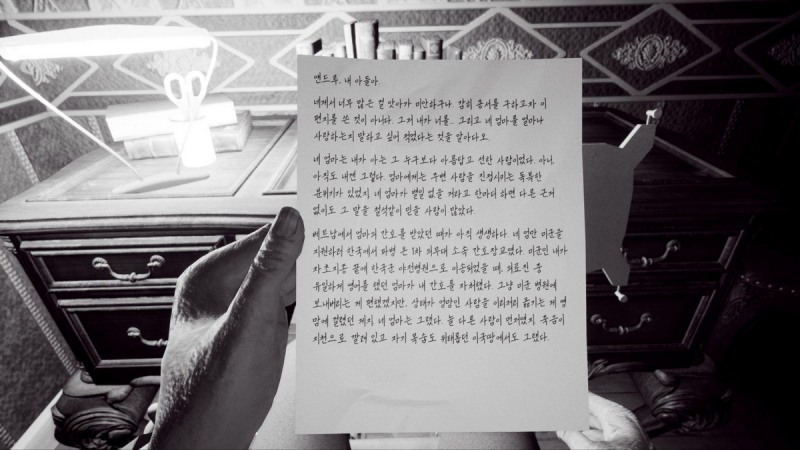 앤드루, 내 아들아.
네게서 너무 많은 걸 앗아가 미안하구나. 감히 용서를 구하고자 이
편지를 쓴 것이 아니다. 그저 내가 너를… 그리고 네 엄마를 얼마나
사랑하는지 말하고 싶어 적었다는 것을 알아다오.
네 엄마는 내가 아는 그 누구보다 아름답고 선한 사람이었다. 아니,
아직도 내면 그렇다. 엄마에게는 주변 사람을 진정시키는 독특한
분위기가 있었지. 네 엄마가 별일 없을 거라고 한마디 하면 다른 근거
없이도 그 말을 철석같이 믿을 사람이 많았다.
베트남에서 엄마의 간호를 받았던 때가 아직 생생하다. 네 엄만 미군을
지원하러 한국에서 파병 온 1차 의무대 소속 간호장교였다. 미군인 내가
자초지종 끝에 한국군 야전병원으로 이송되었을 때, 의료진 중
유일하게 영어를 했던 엄마가 내 간호를 자처했다. 그냥 미군 병원에
보내버리는 게 편했겠지만, 상태가 엉망인 사람을 이리저리 옮기는 게 영
맘에 걸렸던 게지. 네 엄마는 그랬다. 늘 다른 사람이 먼저였지. 죽음이
지천으로 깔려 있고 자기 목숨도 위태롭던 이국땅에서도 그랬다.